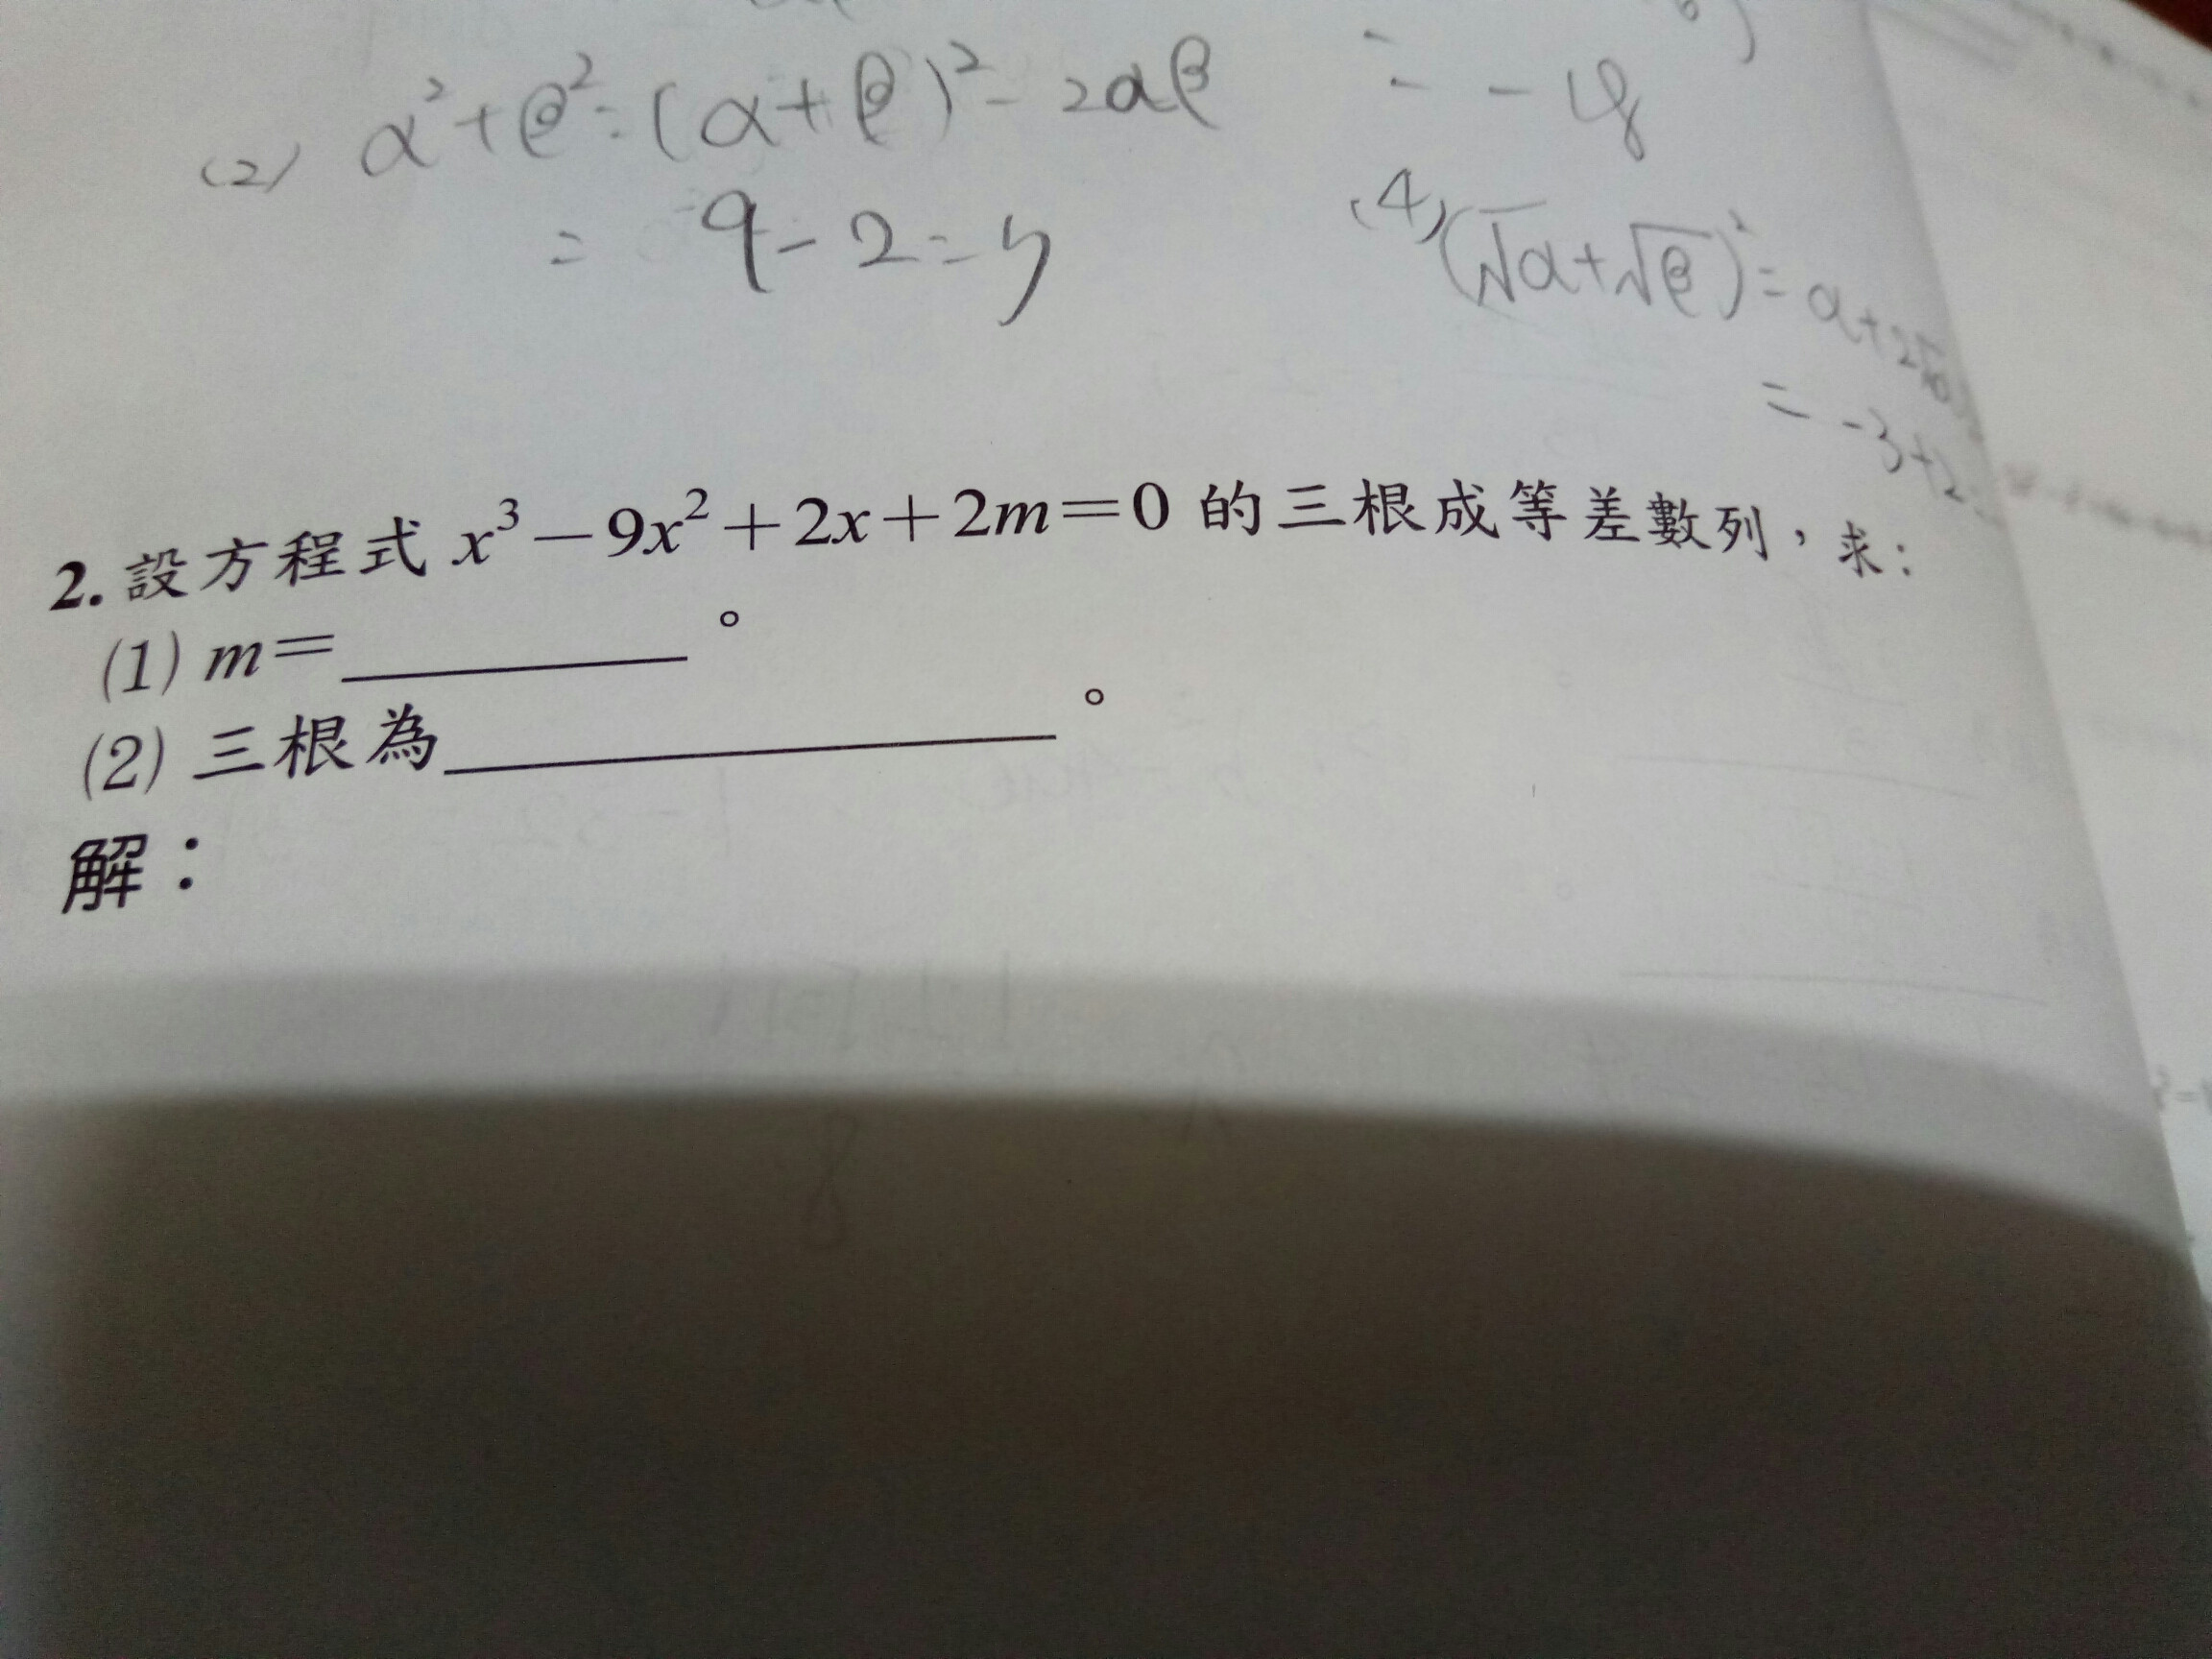 (2) α²+β²=(α+β)²-2αβ
= 9-2=7
= -18
(4) (√α+√β)²=α+2
= -3+2
2. 設方程式 x³-9x²+2x+2m=0 的三根成等差數列，求：
(1) m=________。
(2) 三根為________。
解：